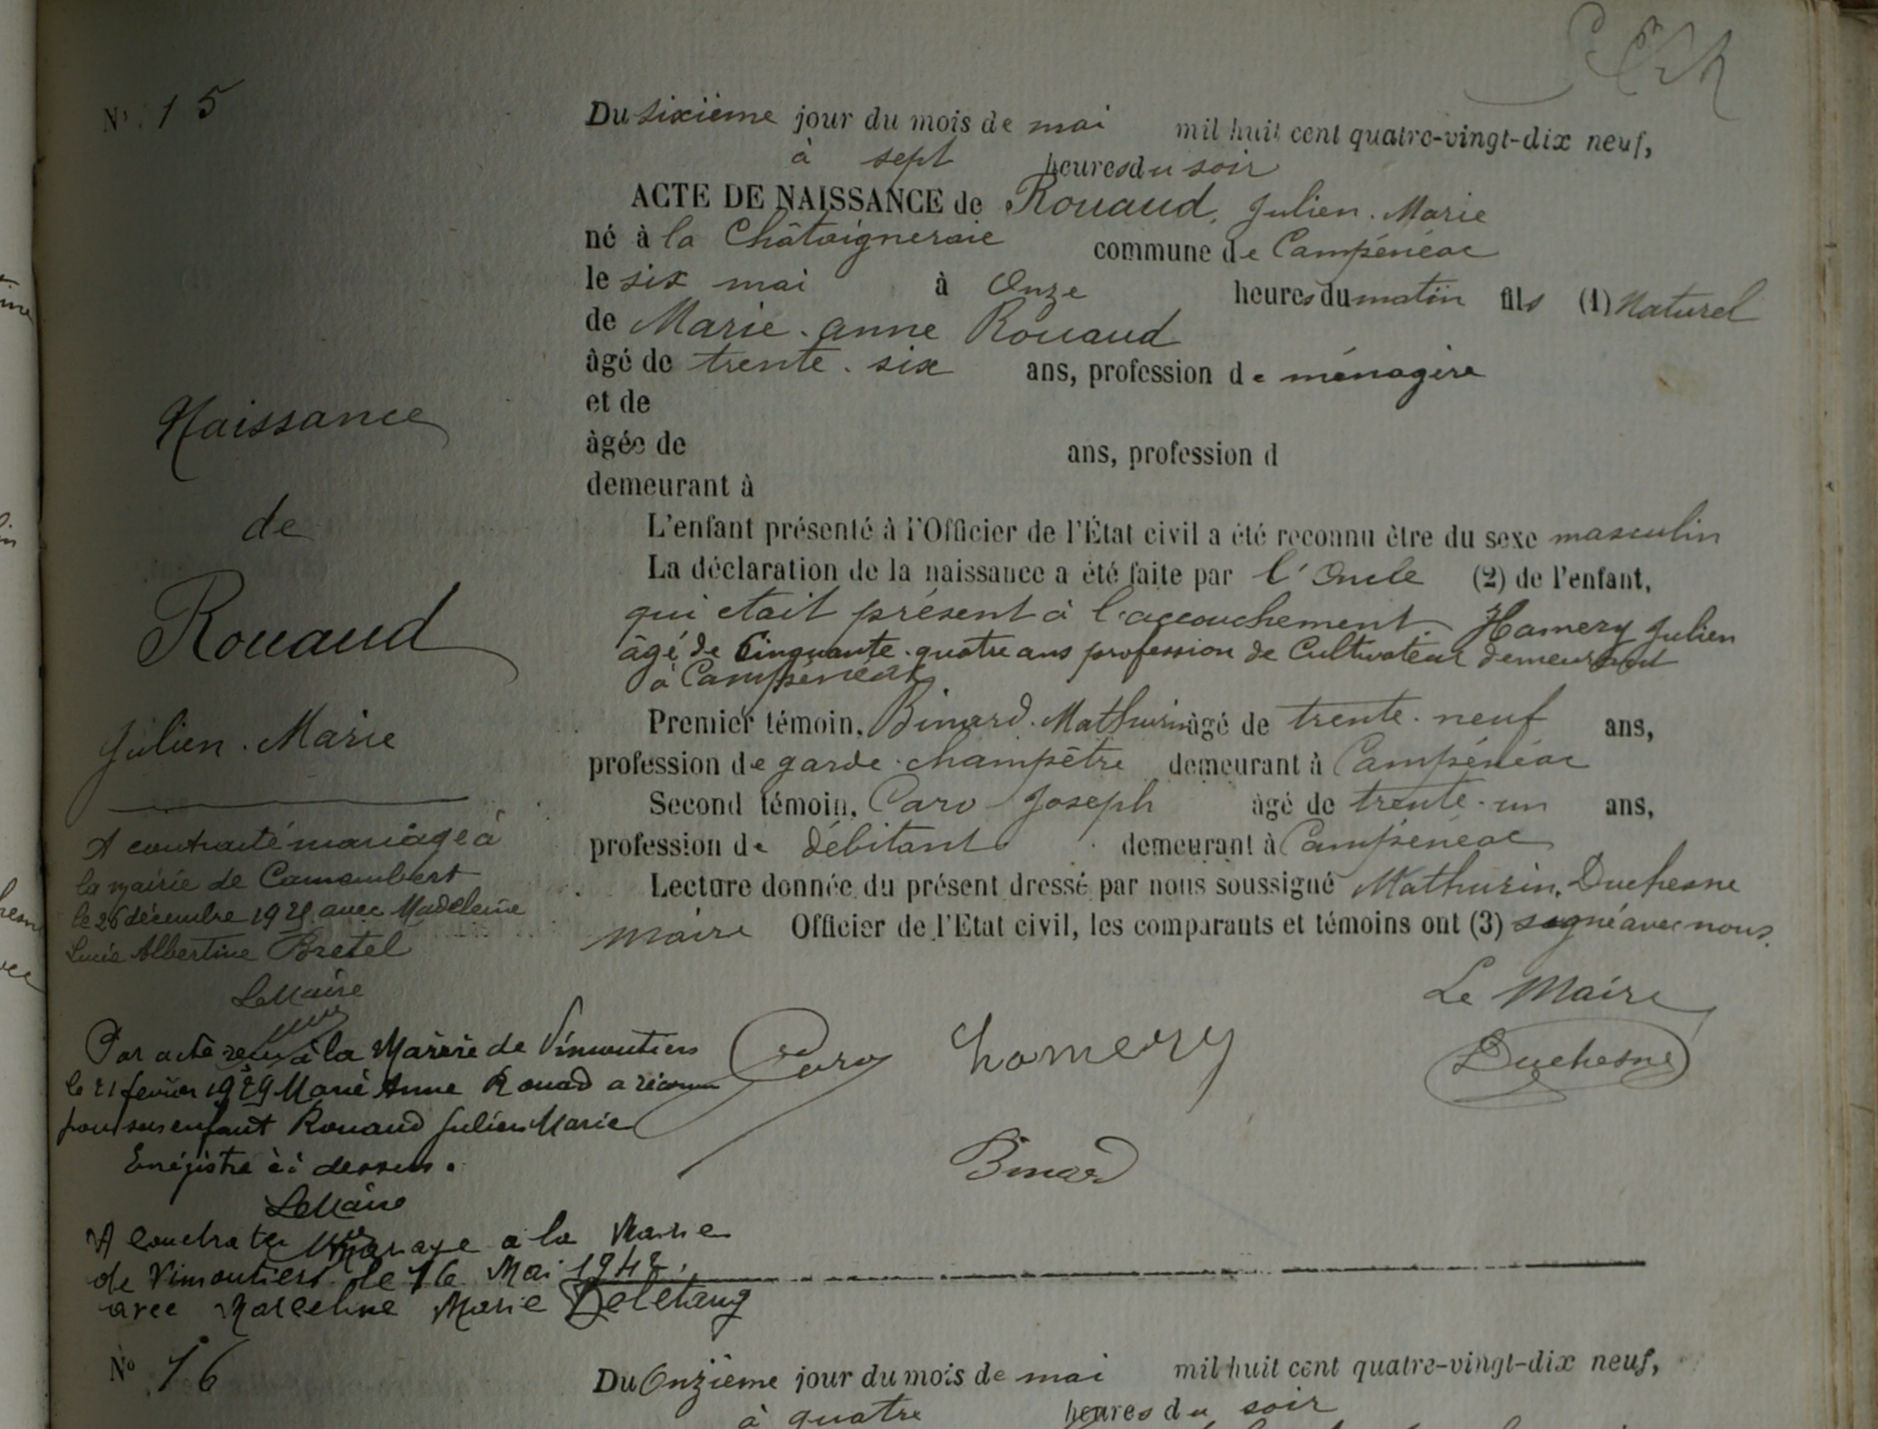 N° 15
Du sixième jour du mois de mai mil huit cent quatre-vingt-dix neuf,
à sept heures du soir
ACTE DE NAISSANCE de Rouaud, Julien. Marie
né à la Châtaigneraie commune de Campénéac
le six mai à Onze heures du matin fils (1) Naturel
de Marie. anne Rouaud
âgé de trente. six ans, profession de ménagère
et de
âgée de ans, profession d
demeurant à
L'enfant présenté à l'Officier de l'État civil a été reconnu être du sexe masculin
La déclaration de la naissance a été faite par l'Oncle (2) de l'enfant,
qui etait présent à l'accouchement Hamery Julien
âgé de Cinquante. quatre ans profession de Cultivateur demeurant
à Campénéac
Premier témoin, Binard. Mathurin âgé de trente. neuf ans,
profession de garde. champêtre demeurant à Campénéac
Second témoin, Caro Joseph âgé de trente. un ans,
profession de débitant demeurant à Campénéac
Lecture donnée du présent dressé par nous soussigné Mathurin. Duchesne
maire Officier de l'Etat civil, les comparants et témoins ont (3) signé avec nous.
Le Maire
Caro hamery Duchesne
Binard
Naissance
de
Rouaud
Julien. Marie
A contracté mariage à
la mairie de Camembert
le 26 décembre 1921 avec Madeleine
Lucie Albertine Bretel
Le Maire
Par acte reçu à la Mairie de Vimoutiers
le 21 fevrier 1929 Marie Anne Rouad a reconnu
pour son enfant Rouaud Julien Marie
Enregistré ci dessus.
Le Maire
A contracté mariage a la Mairie
de Vimoutiers le 16 Mai 1942.
avec Marceline Marie Deletang
N° 16
Du Onzième jour du mois de mai mil huit cent quatre-vingt-dix neuf,
à quatre heures du soir